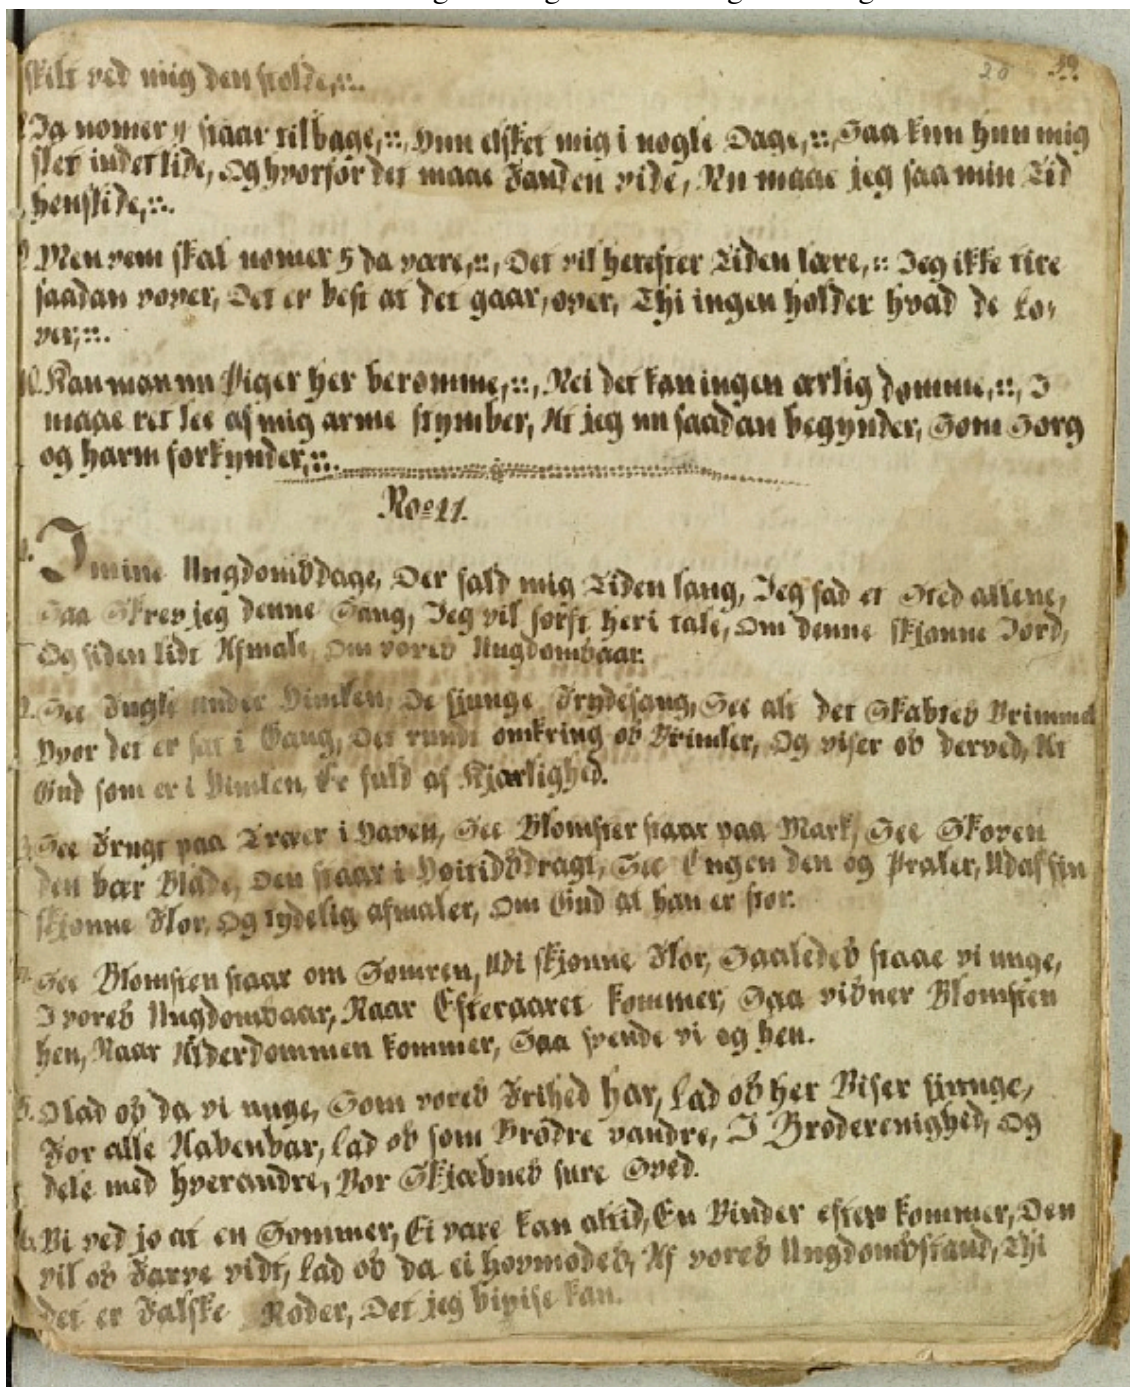 20 39.
skilt ved mig den stolte,:,:.
Ja nomer 4 staar tilbage,:,:, Hun elsket mig i nogle Dage,:,:, Saa kun hun mig
slet indet lide, Og hvorfor det maae Fanden vide, Nu maae jeg saa min Tid
henslide,:,:.
9. Men vem skal nomer 5 da være,:,:, Det vil herefter Tiden lære,:,: Jeg ikke tire
saadan vover, Det er best at det gaar, over, Thi ingen holder hvad de Lo,
ver,:,:.
10. Kan man nu Piger her berømme,:,:, Nei det kan ingen ærlig dømme,:,:, I
maae ret lee af mig arme stymber, At jeg nu saadan begynder, Som Sorg
og harm forkynder,:,:.
No 11.
1. I mine Ungdomsdage, Der fald mig Tiden lang, Jeg sad et Sted allene,
Saa Skrev jeg denne Sang, Jeg vil først heri tale, Om denne skjønne Jord,
Og siden lidt Afmale, Om vores Ungdomsaar.
2. See Fugle under Himlen, De sjunge Frydesang, See alt det Skabtes Vrimmel
Hvor det er sat i Gang, Det rundt omkring os Vrimler, Og viser os derved, At
Gud som er i Himlen, Er fuld af Kjærlighed.
3. See Frugt paa Træer i Haven, See Blomster staar paa Mark, See Skoven
den bær Blade, Den staar i Høitidsdragt, See Engen den og Praler, Udaf sin
skjønne Flor, Og tydelig afmaler, Om Gud at han er stor.
4. See Blomsten staar om Somren, Udi skjønne Flor, Saaledes staae vi unge,
I vores Ungdomsaar, Naar Efteraaret kommer, Saa visner Blomsten
hen, Naar Alderdommen kommer, Saa svende vi og hen.
5. O lad os da vi unge, Som vores Frihed har, Lad os her Viser sjunge,
For alle Aabenbar, Lad os som Brødre vandre, I Broderenighed, Og
dele med hverandre, Vor Skjæbnes sure Sved.
6. Vi ved jo at en Sommer, Ei vare kan altid, En Vinder efter kommer, Den
vil os Farve vidt, Lad os da ei hovmodes, Af vores Ungdomsstand, Thi
det er Falske Røder, Det jeg bivise kan.